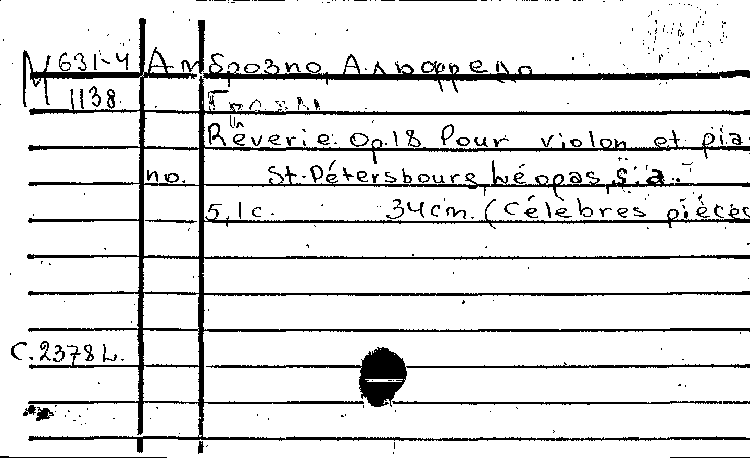 М 631-4 Амброзио, Альфредо
1138 Грезы
Rêverie. Op.18 Pour violon et pia
no. St.-Pétersbours, Léopas, s.a.
5,1 c. 34 cm. (Célèbres pièces
C.2378 L.